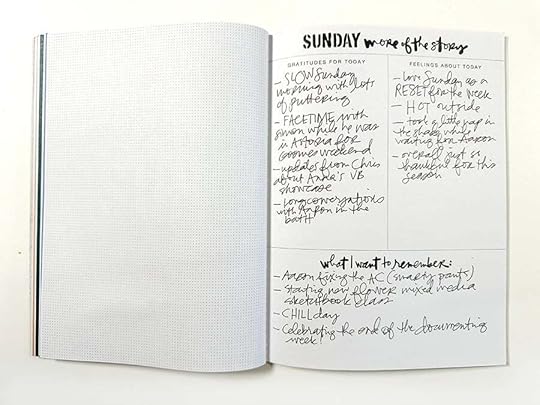 SUNDAY more of the story
GRATITUDES FOR TODAY
- SLOW Sunday
morning with lots
of puttering
- FACETIME with
simon while he was
in Astoria for
Goonies weekend
- updates from Chris
about Anna's VB
showcase
- long conversations
with Aaron in the
bath
FEELINGS ABOUT TODAY
- love Sunday as a
RESET for the week
- HOT outside
- took a little nap in
the shade while
waiting for Aaron
- overall just so
thankful for this
season
what I want to remember:
- Aaron fixing the AC (smarty pants)
- starting new flower mixed media
sketchbook class
- CHILL day
- Celebrating the end of the documenting
week!